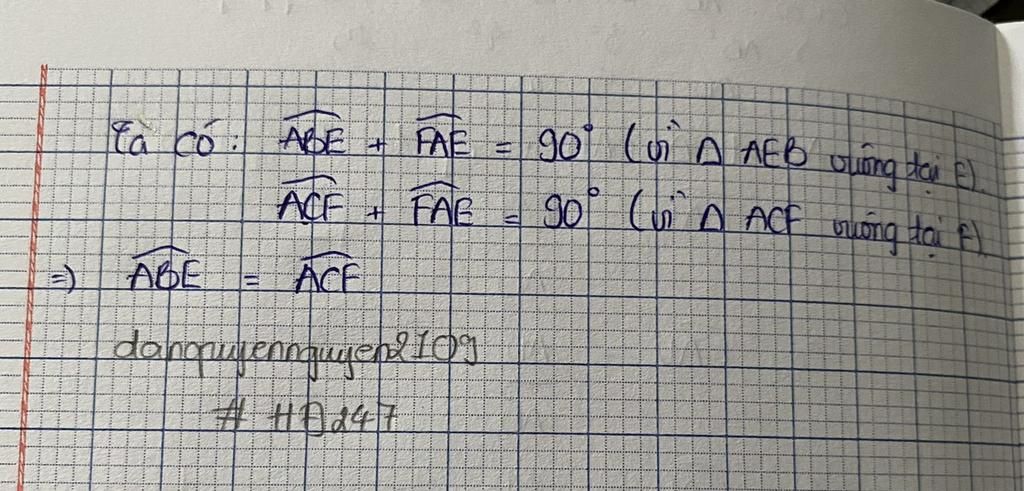 Ta có: ABE + FAE = 90° (vì Δ AEB vuông tại E).
ACF + FAE = 90° (vì Δ ACF vuông tại F).
=> ABE = ACF
danquyennguyen2109
# HĐ247